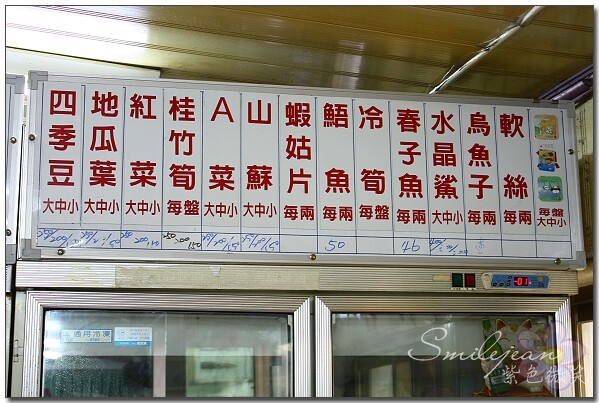 四季豆 大中小
地瓜葉 大中小
紅菜 大中小
桂竹筍 每盤
A菜 大中小
山蘇 大中小
蝦姑片 每兩
鯃魚 每兩
冷筍 每盤
春子魚 每兩
水晶鯊 大中小
烏魚子 每兩
軟絲 每兩
每盤 大中小
50
46
適用冷凍
Smilejean
紫色微笑